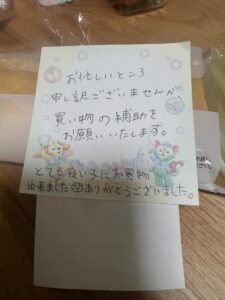 お忙しいところ
申し訳ございませんが
買い物の補助を
お願いいたします。
とても良い子にお買物
出来ました☺ありがとうございました。